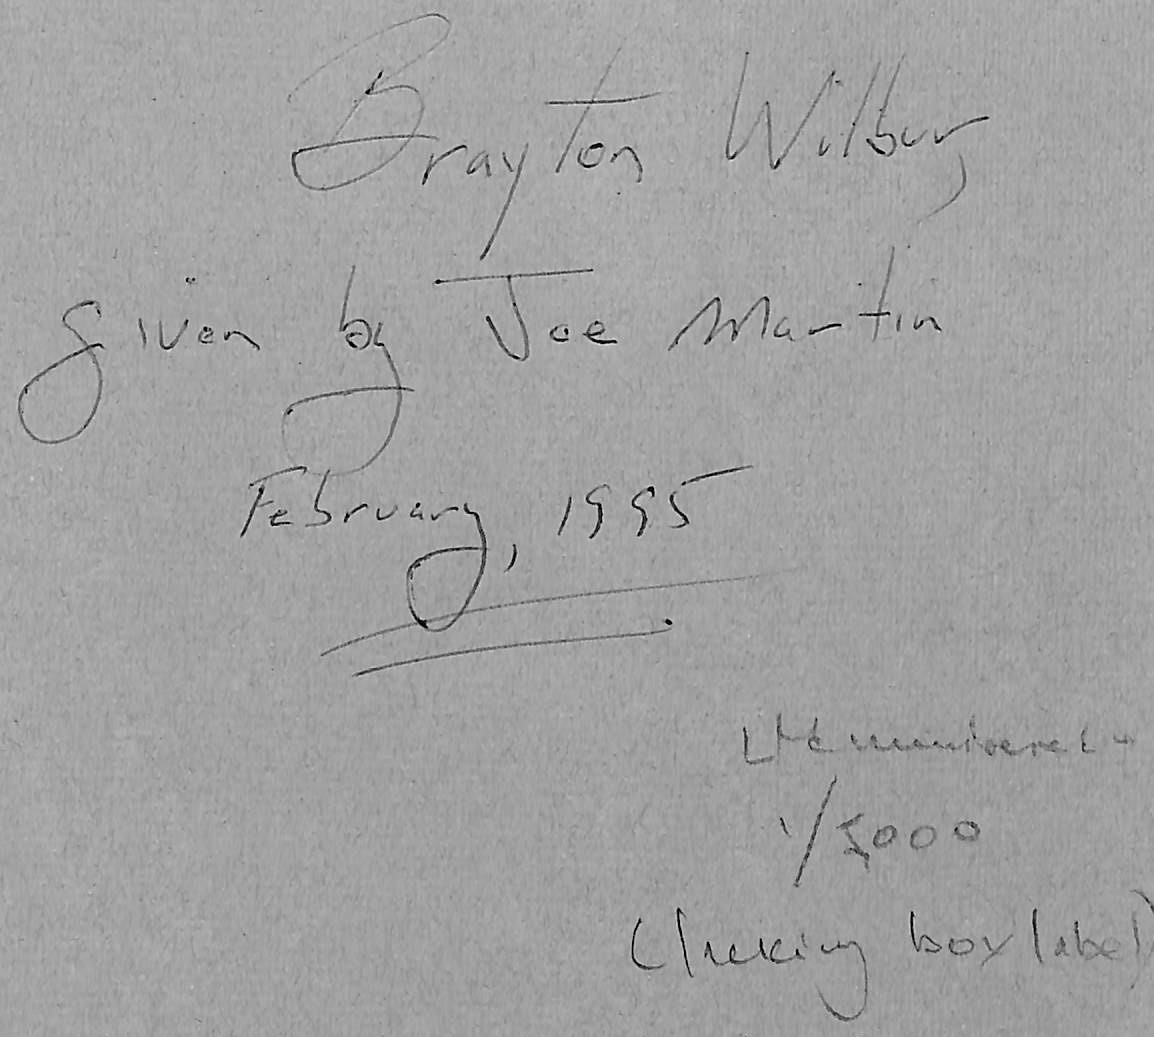 Brayton Wilbur,
given by Joe Martin
February, 1995
1/5000
(lacking box label)